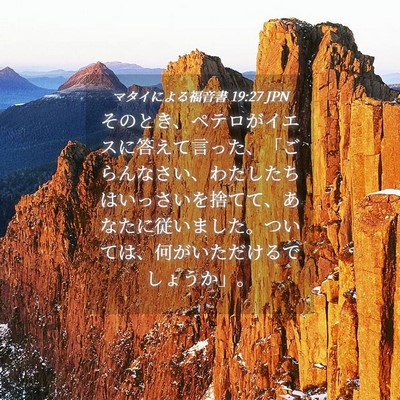 マタイによる福音書 19:27 JPN
そのとき、ペテロがイエ
スに答えて言った、「ご
らんなさい、わたしたち
はいっさいを捨てて、あ
なたに従いました。つい
ては、何がいただけるで
しょうか」。